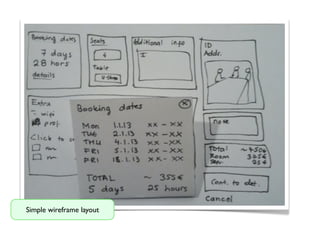 Booking dates
7 days
28 hors
details
Seats
6
Table
U-Shape
Additional info
I
ID
Addr.
Extra
wifi
proj.
Click to
Note
Total ~ 450€
Room 325€
Cont. to det.
Cancel
Booking dates
X
Mon 1.1.13 xx - xx
TUE 2.1.13 xx - xx
THU 4.1.13 xx - xx
FRI 5.1.13 xx - xx
FRI 18.1.13 xx - xx
TOTAL ~ 355€
5 days 25 hours
Simple wireframe layout